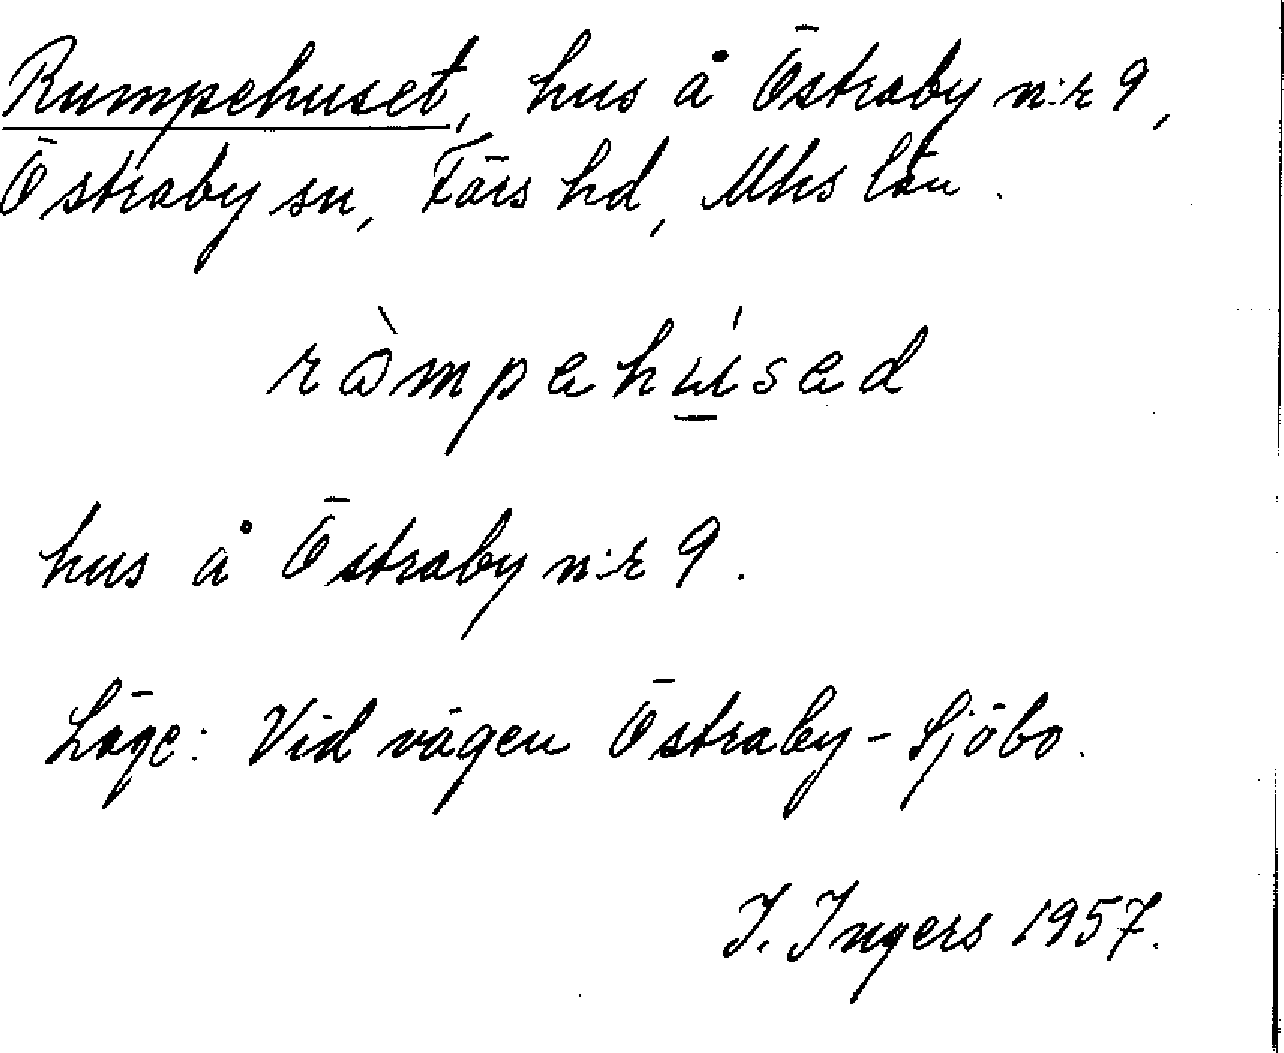 Rumpehuset, hus å Östraby n:r 9,
Östraby sn, Färs hd, Mhs län.
ràmpehúsed
hus å Östraby n:r 9.
Läge: Vid vägen Östraby - Sjöbo.
I. Ingers 1957.